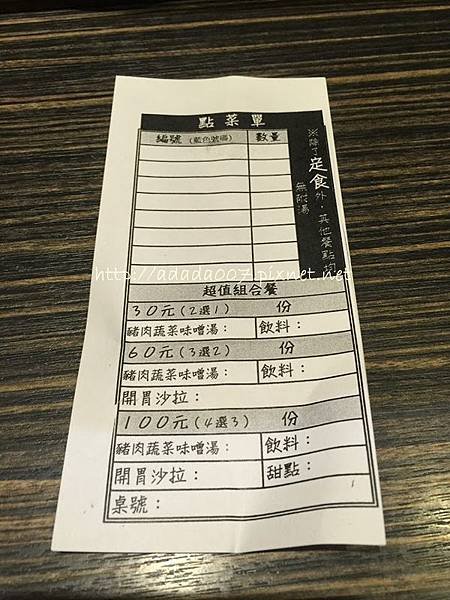 點菜單
編號(藍色號碼) 數量
※除了定食外,其他餐點均
無附湯
http://adada007.pixnet.net
超值組合餐
30元(2選1) 份
豬肉蔬菜味噌湯: 飲料:
60元(3選2) 份
豬肉蔬菜味噌湯: 飲料:
開胃沙拉:
100元(4選3) 份
豬肉蔬菜味噌湯: 飲料:
開胃沙拉: 甜點:
桌號: